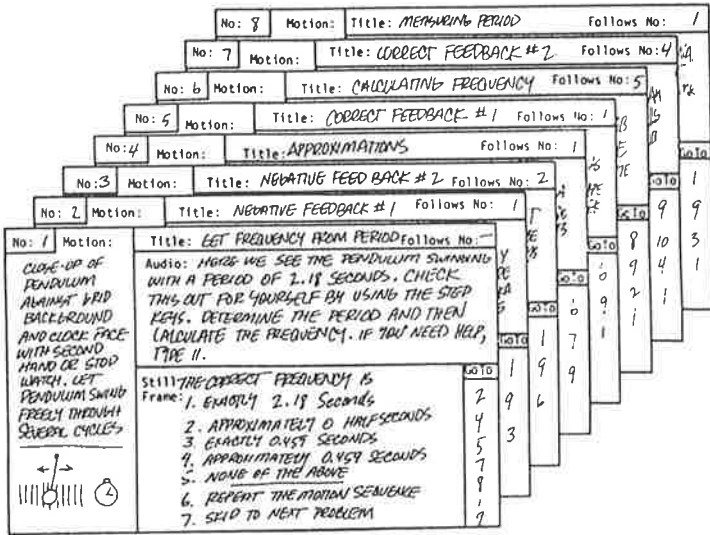 No: 8 Motion: Title: MEASURING PERIOD Follows No: 1
No: 7 Motion: Title: CORRECT FEEDBACK #2 Follows No: 4
No: 6 Motion: Title: CALCULATING FREQUENCY Follows No: 5
No: 5 Motion: Title: CORRECT FEEDBACK #1 Follows No: 1
No: 4 Motion: Title: APPROXIMATIONS Follows No: 1
No: 3 Motion: Title: NEGATIVE FEED BACK #2 Follows No: 2
No: 2 Motion: Title: NEGATIVE FEEDBACK #1 Follows No: 1
No: 1 Motion: Title: GET FREQUENCY FROM PERIOD Follows No: —
CLOSE-UP OF
PENDULUM
AGAINST GRID
BACKGROUND
AND CLOCK FACE
WITH SECOND
HAND OR STOP
WATCH. LET
PENDULUM SWING
FREELY THROUGH
SEVERAL CYCLES
Audio: HERE WE SEE THE PENDULUM SWINGING
WITH A PERIOD OF 2.18 SECONDS. CHECK
THIS OUT FOR YOURSELF BY USING THE STEP
KEYS. DETERMINE THE PERIOD AND THEN
CALCULATE THE FREQUENCY. IF YOU NEED HELP,
TYPE 11.
Still Frame: THE CORRECT FREQUENCY IS
1. EXACTLY 2.18 Seconds
2. APPROXIMATELY 0 HALFSECONDS
3. EXACTLY 0.459 SECONDS
4. APPROXIMATELY 0.459 SECONDS
5. NONE OF THE ABOVE
6. REPEAT THE MOTION SEQUENCE
7. SKIP TO NEXT PROBLEM
GoTo
2
4
5
7
8
1
9
GoTo
1
9
3
GoTo
1
9
6
GoTo
7
9
GoTo
9
1
GoTo
8
9
2
1
GoTo
9
10
4
1
GoTo
1
9
3
1